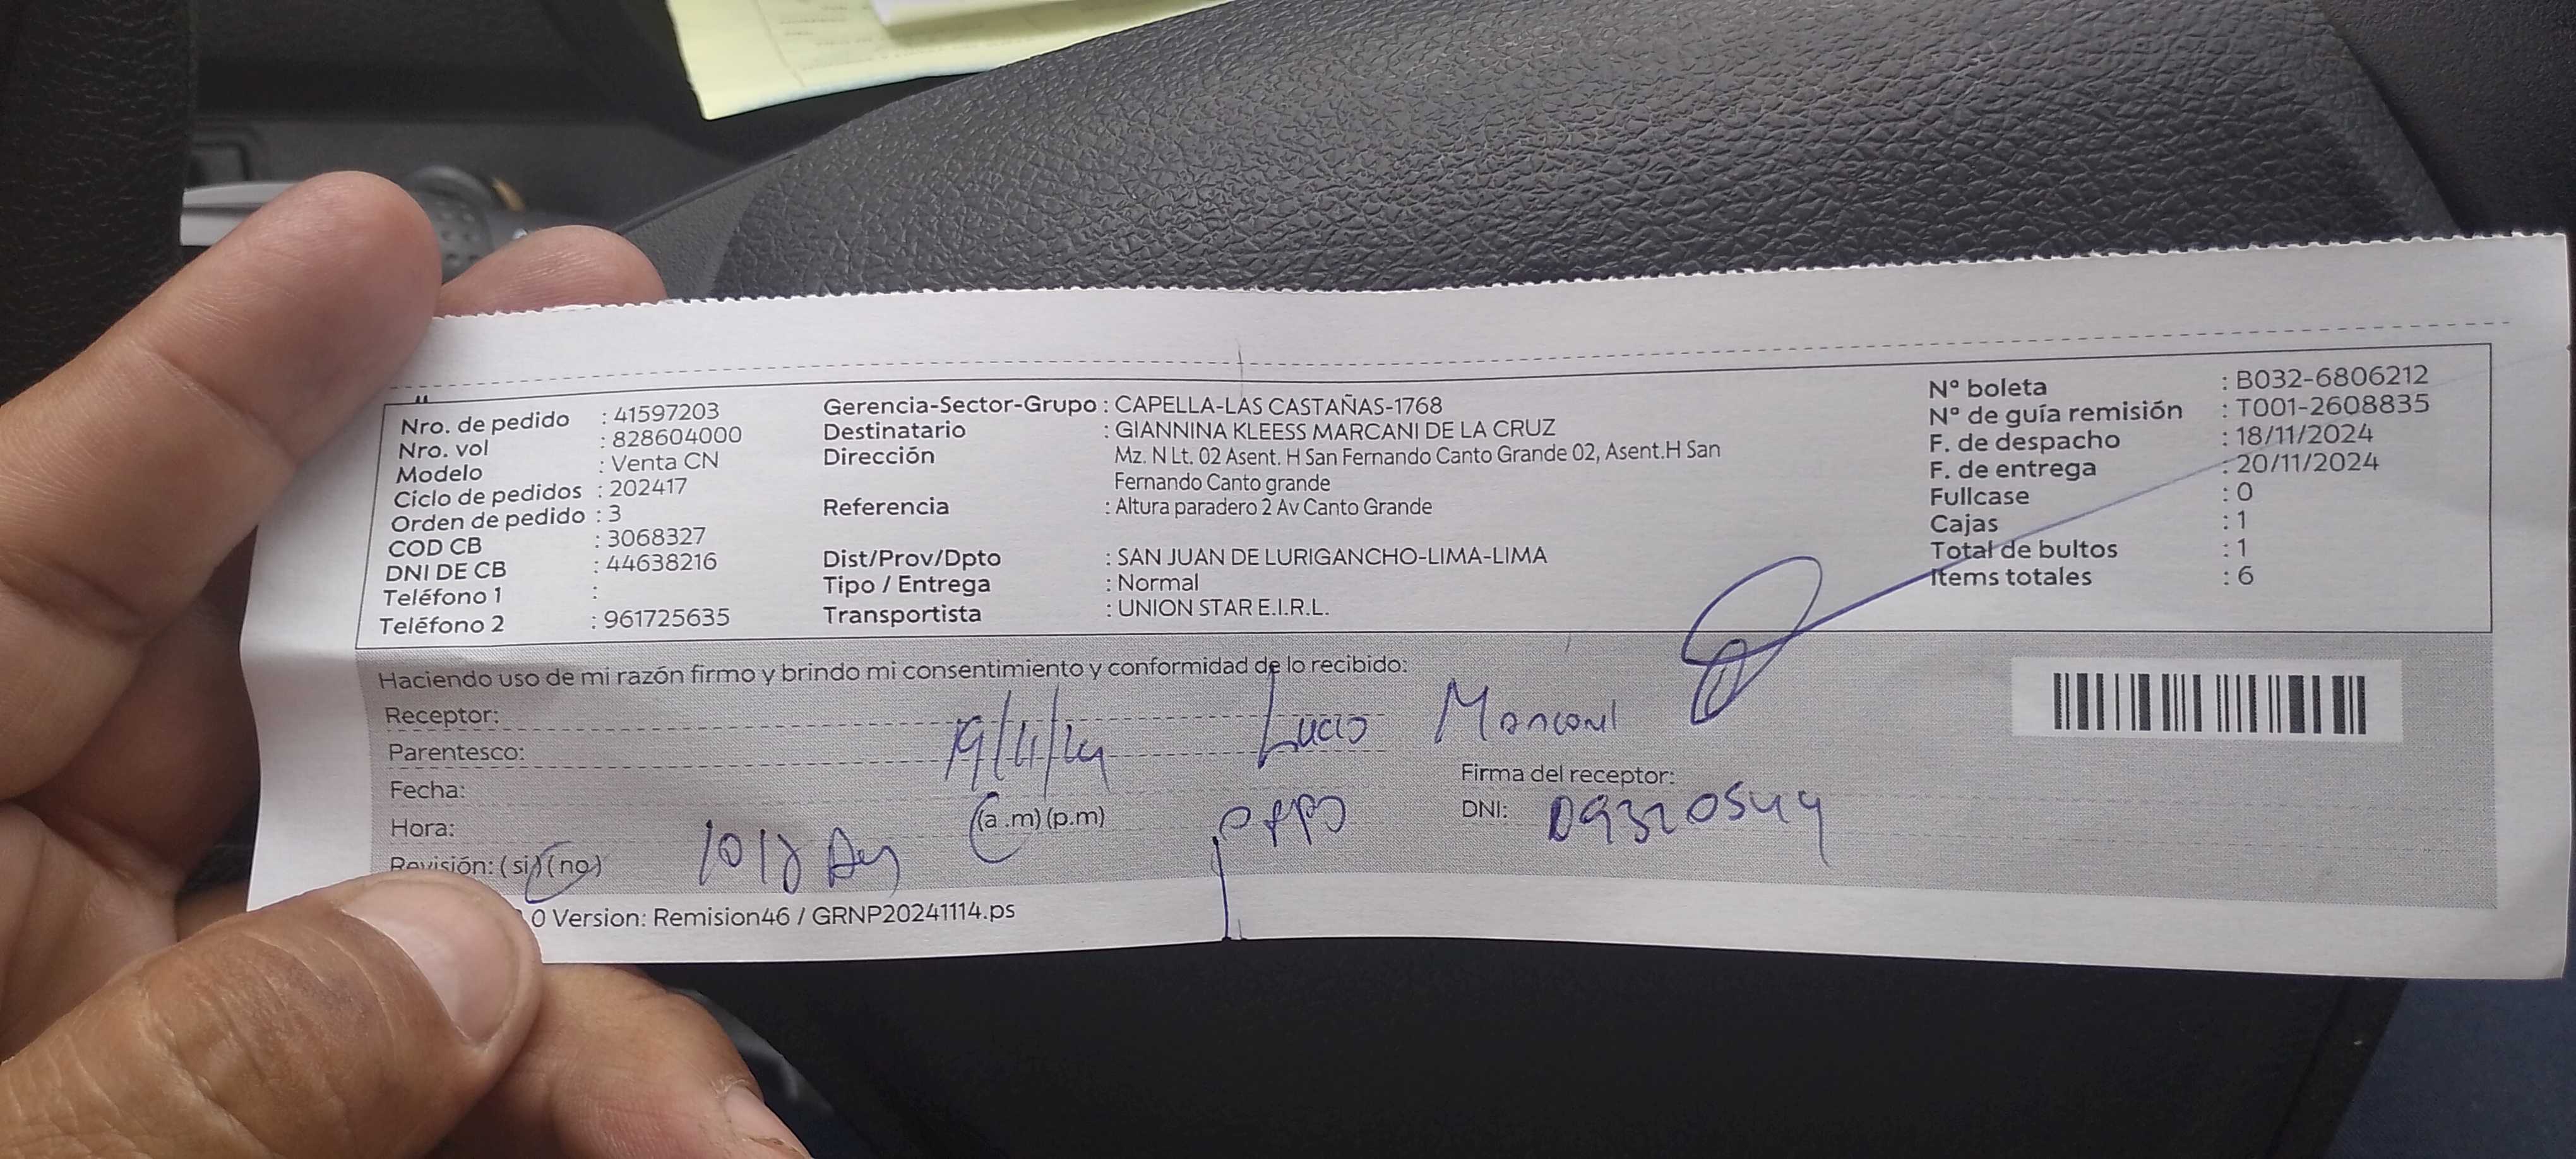 Nro. de pedido : 41597203
Nro. vol : 828604000
Modelo : Venta CN
Ciclo de pedidos : 202417
Orden de pedido : 3
COD CB : 3068327
DNI DE CB : 44638216
Teléfono 1 :
Teléfono 2 : 961725635
Gerencia-Sector-Grupo : CAPELLA-LAS CASTAÑAS-1768
Destinatario : GIANNINA KLEESS MARCANI DE LA CRUZ
Dirección Mz. N Lt. 02 Asent. H San Fernando Canto Grande 02, Asent.H San
Fernando Canto grande
Referencia : Altura paradero 2 Av Canto Grande
Dist/Prov/Dpto : SAN JUAN DE LURIGANCHO-LIMA-LIMA
Tipo / Entrega : Normal
Transportista : UNION STAR E.I.R.L.
N° boleta : B032-6806212
N° de guía remisión : T001-2608835
F. de despacho : 18/11/2024
F. de entrega : 20/11/2024
Fullcase : 0
Cajas : 1
Total de bultos : 1
Items totales : 6
Haciendo uso de mi razón firmo y brindo mi consentimiento y conformidad de lo recibido:
Receptor: Lucio
Parentesco: 19/11/24
Fecha:
Hora: (a.m) (p.m)
Revisión: (si) (no)
Firma del receptor:
DNI: 09320544
0 Version: Remision46 / GRNP20241114.ps